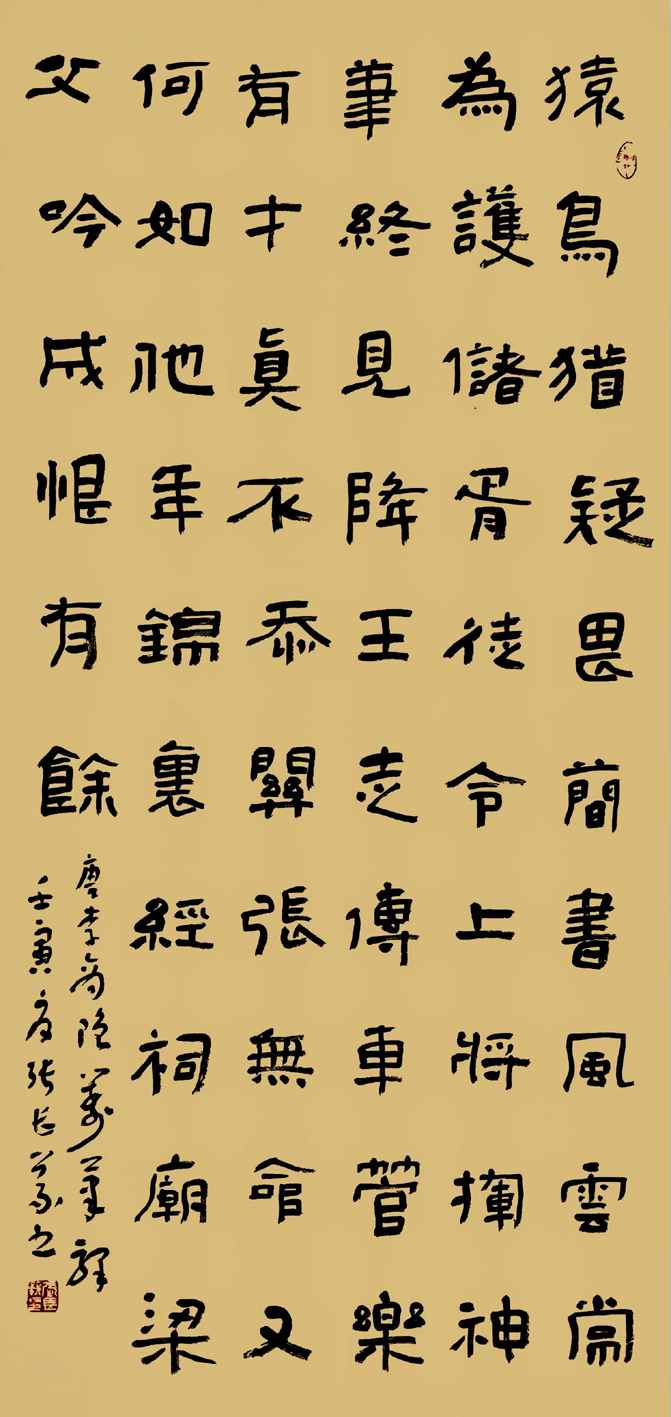 猿鳥猶疑畏簡書風雲常
為護儲胥徒令上將揮神
筆終見降王走傳車管樂
有才真不忝關張無命又
何如他年錦裏經祠廟梁
父吟成恨有餘
唐李商隐籌筆驛
壬寅夏张长義书